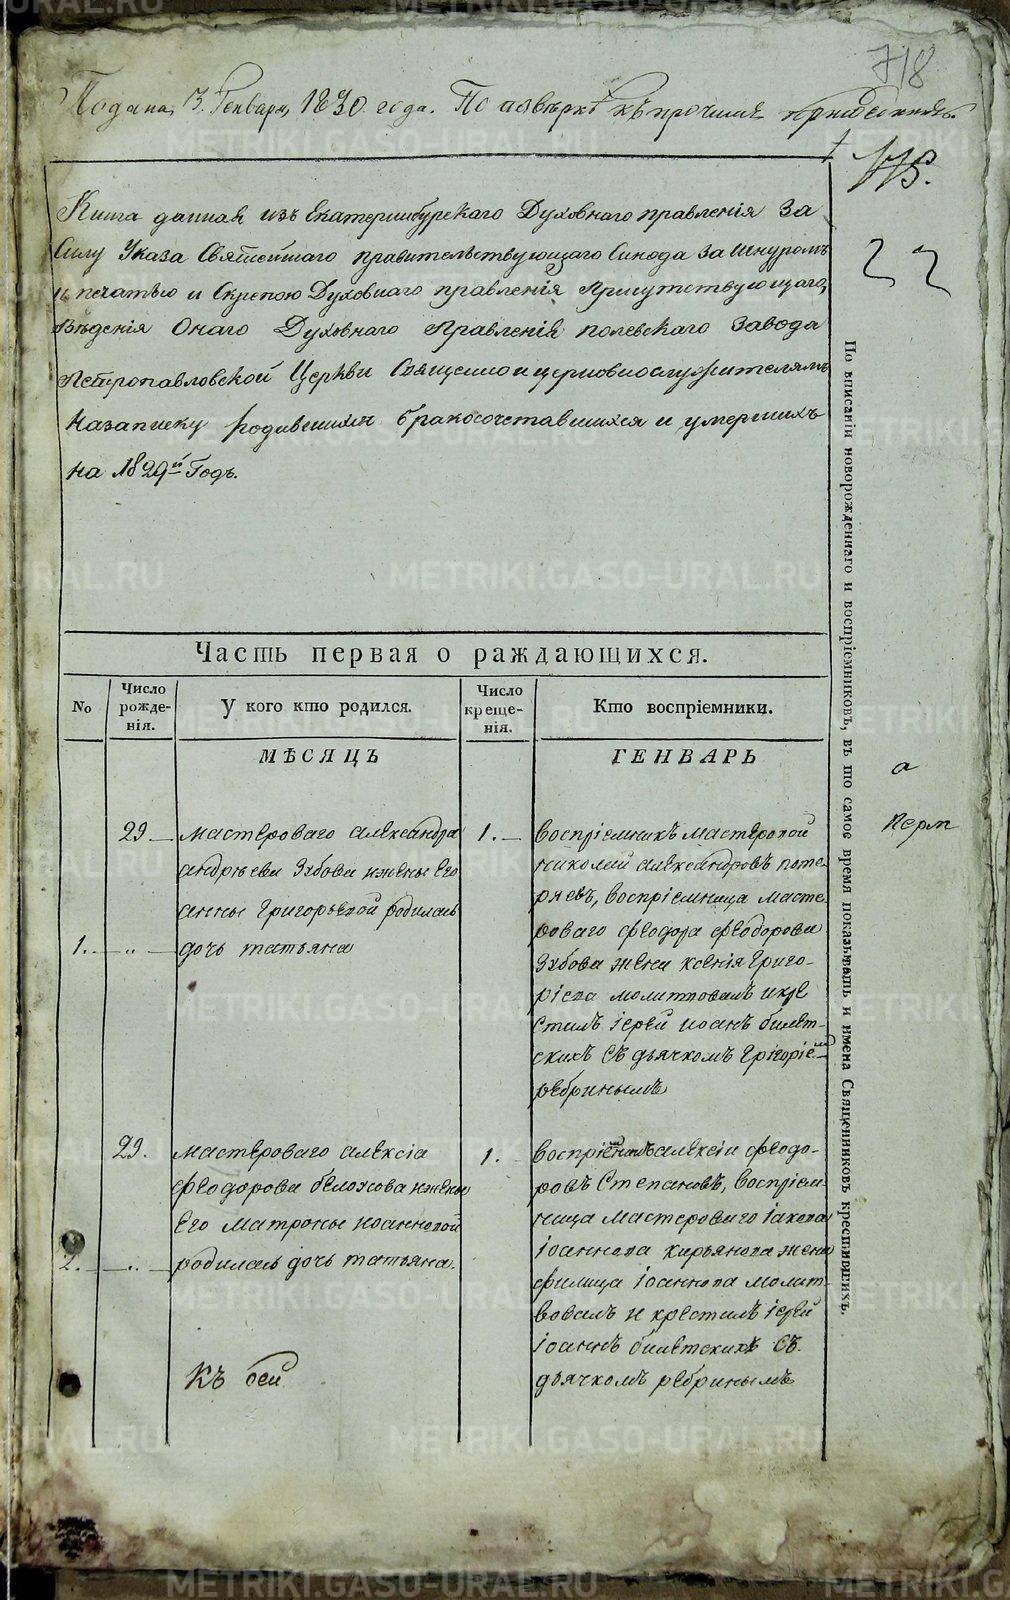 718
Подана, 3. Генваря, 1830 года. По повѣркѣ къ прочимъ
118.
Книга данная изъ Екатеринбурскаго Духовнаго правленія За
Силу Указа Святейшаго правительствующаго Синода за шнуромъ
и печатью и Скрепою Духовнаго правленія Присутствующаго,
Вѣденія Онаго Духовнаго Правленія полевскаго Завода
Петропавловской Церкви Священно и церковнослужителямъ
Назаписку родившихся бракосочетавшихся и умершихъ
на 1829й Годъ.
Часть первая о раждающихся.
No
Число рожде-нія.
У кого кто родился.
Число креще-нія.
Кто воспріемники.
МѢСЯЦЪ
ГЕНВАРЬ
29. мастероваго александра
андрѣева Зубова ижены Его
анны григорьевой родилась
1. „ дочь татьяна
1. воспріемникъ мастеровой
николай александровъ поте-
ряевъ, воспріемница масте-
роваго феодора феодорова
Зубова жена ксенія григо-
ріева молитвовалъ икре
стилъ іерей иоанъ билет-
скихъ съ дьячкомъ григоріемъ
ребринымъ
29. мастероваго алексіа
феодорова белоусова ижены
Его матроны иоанновой
2. „ родилась дочь татьяна.
1. воспріемникъ алексіи феодо-
ровъ Степановъ, воспріем-
ница мастероваго іакова
іоаннова кирьянова жена
іоаннова молит-
вовалъ и крестилъ іерей
іоаннъ билетскихъ съ
дьячкомъ ребринымъ
Къ сей
По вписаніи новорожденнаго и воспріемниковъ, въ то самое время показывать и имена Священниковъ крестившихъ.
METRIKI.GASO-URAL.RU